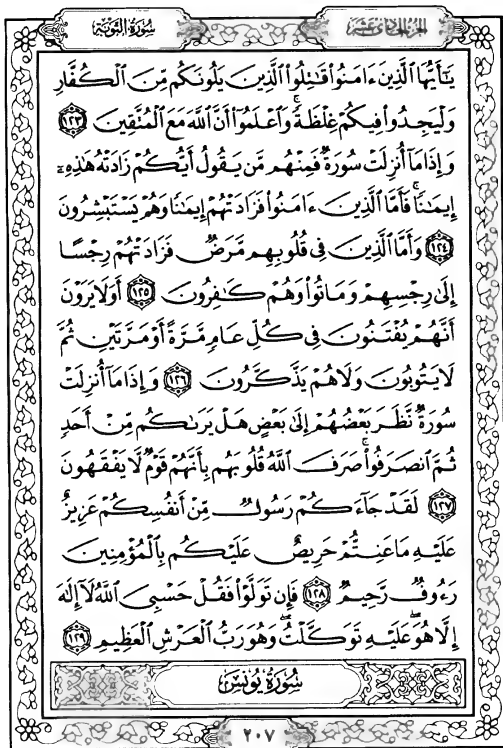 سُورَةُ التَّوْبَةِ
الجُزءُ الحَادِي عَشَر
يَٰٓأَيُّهَا ٱلَّذِينَ ءَامَنُوا۟ قَٰتِلُوا۟ ٱلَّذِينَ يَلُونَكُم مِّنَ ٱلْكُفَّارِ
وَلْيَجِدُوا۟ فِيكُمْ غِلْظَةً ۚ وَٱعْلَمُوٓا۟ أَنَّ ٱللَّهَ مَعَ ٱلْمُتَّقِينَ ١٢٣
وَإِذَا مَآ أُنزِلَتْ سُورَةٌ فَمِنْهُم مَّن يَقُولُ أَيُّكُمْ زَادَتْهُ هَٰذِهِۦٓ
إِيمَٰنًا ۚ فَأَمَّا ٱلَّذِينَ ءَامَنُوا۟ فَزَادَتْهُمْ إِيمَٰنًا وَهُمْ يَسْتَبْشِرُونَ
١٢٤ وَأَمَّا ٱلَّذِينَ فِى قُلُوبِهِم مَّرَضٌ فَزَادَتْهُمْ رِجْسًا
إِلَىٰ رِجْسِهِمْ وَمَاتُوا۟ وَهُمْ كَٰفِرُونَ ١٢٥ أَوَلَا يَرَوْنَ
أَنَّهُمْ يُفْتَنُونَ فِى كُلِّ عَامٍ مَّرَّةً أَوْ مَرَّتَيْنِ ثُمَّ
لَا يَتُوبُونَ وَلَا هُمْ يَذَّكَّرُونَ ١٢٦ وَإِذَا مَآ أُنزِلَتْ
سُورَةٌ نَّظَرَ بَعْضُهُمْ إِلَىٰ بَعْضٍ هَلْ يَرَىٰكُم مِّنْ أَحَدٍ
ثُمَّ ٱنصَرَفُوا۟ ۚ صَرَفَ ٱللَّهُ قُلُوبَهُم بِأَنَّهُمْ قَوْمٌ لَّا يَفْقَهُونَ
١٢٧ لَقَدْ جَآءَكُمْ رَسُولٌ مِّنْ أَنفُسِكُمْ عَزِيزٌ
عَلَيْهِ مَا عَنِتُّمْ حَرِيصٌ عَلَيْكُم بِٱلْمُؤْمِنِينَ
رَءُوفٌ رَّحِيمٌ ١٢٨ فَإِن تَوَلَّوْا۟ فَقُلْ حَسْبِىَ ٱللَّهُ لَآ إِلَٰهَ
إِلَّا هُوَ ۖ عَلَيْهِ تَوَكَّلْتُ ۖ وَهُوَ رَبُّ ٱلْعَرْشِ ٱلْعَظِيمِ ١٢٩
سُورَةُ يُونُسَ
٢٠٧